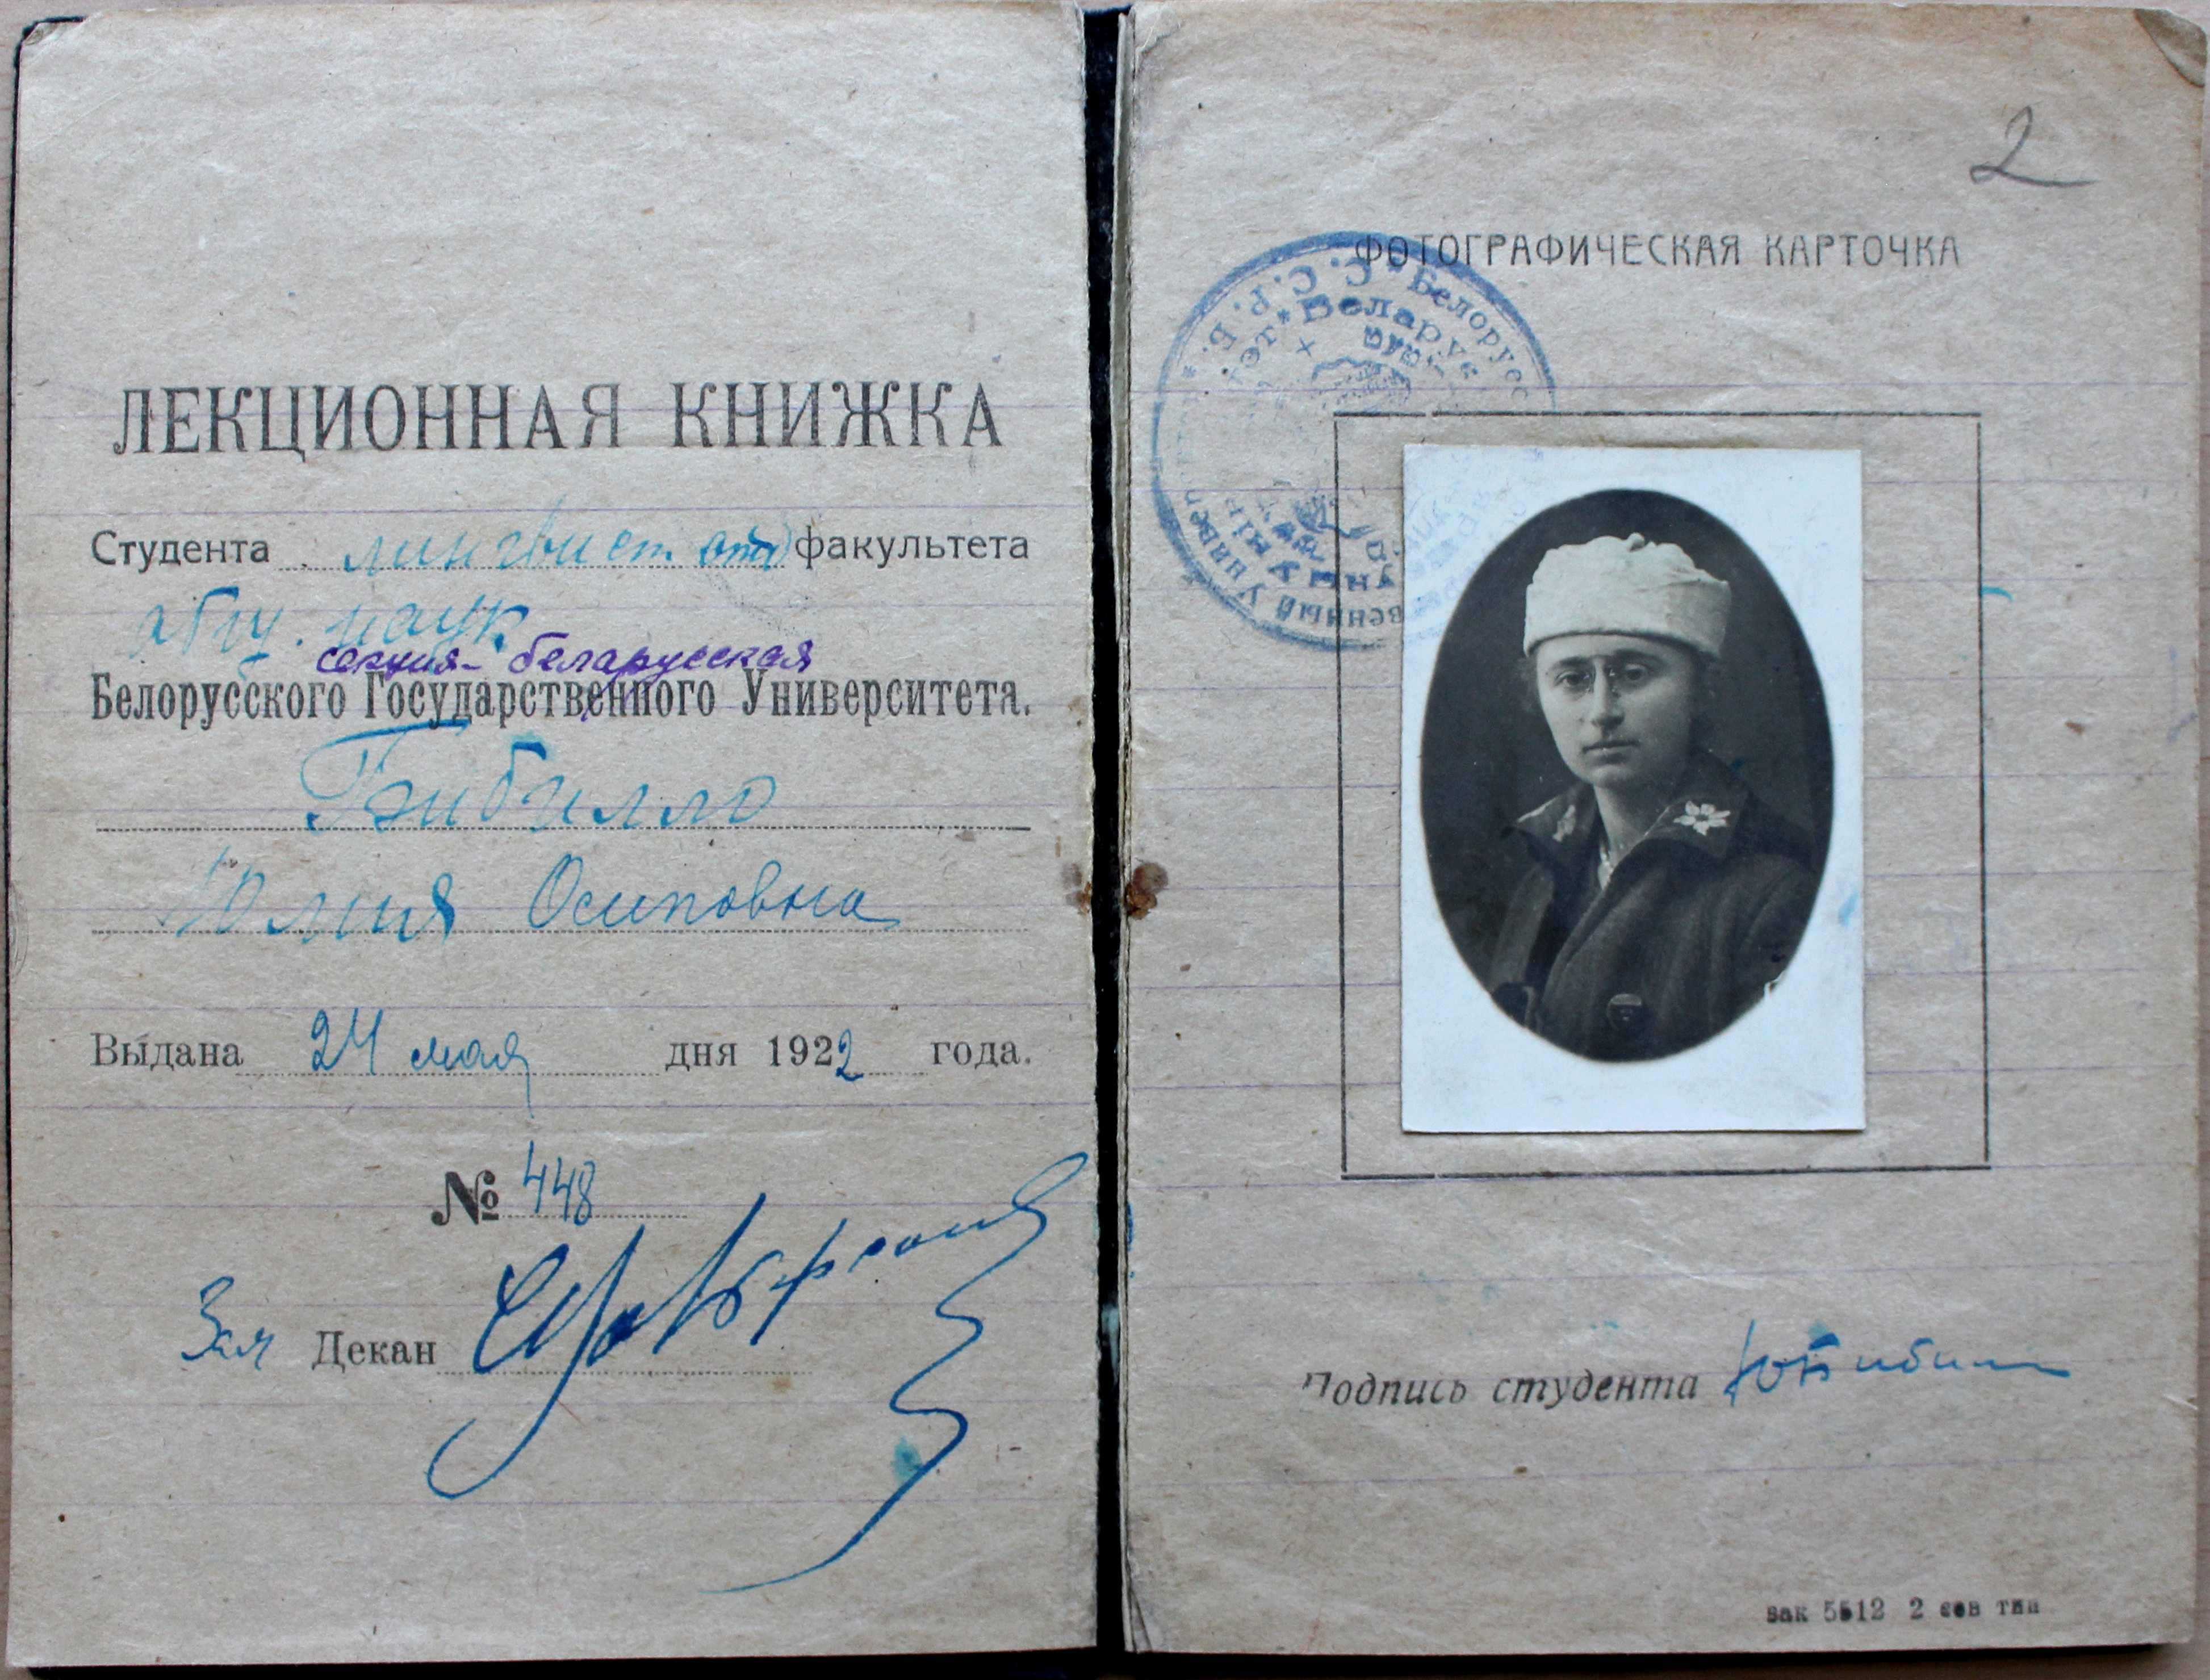 ЛЕКЦИОННАЯ КНИЖКА
Студента лингвист. отд факультета
общ. наук
секция - беларусская
Белорусского Государственного Университета.
Бибилло
Юлия Осиповна
Выдана 24 мая дня 1922 года.
№ 448
Зам Декан
2
ФОТОГРАФИЧЕСКАЯ КАРТОЧКА
С. С. Р. Б. * Белорусс
Беларус
Подпись студента ЮБибилло
зак 5512 2 сов тип